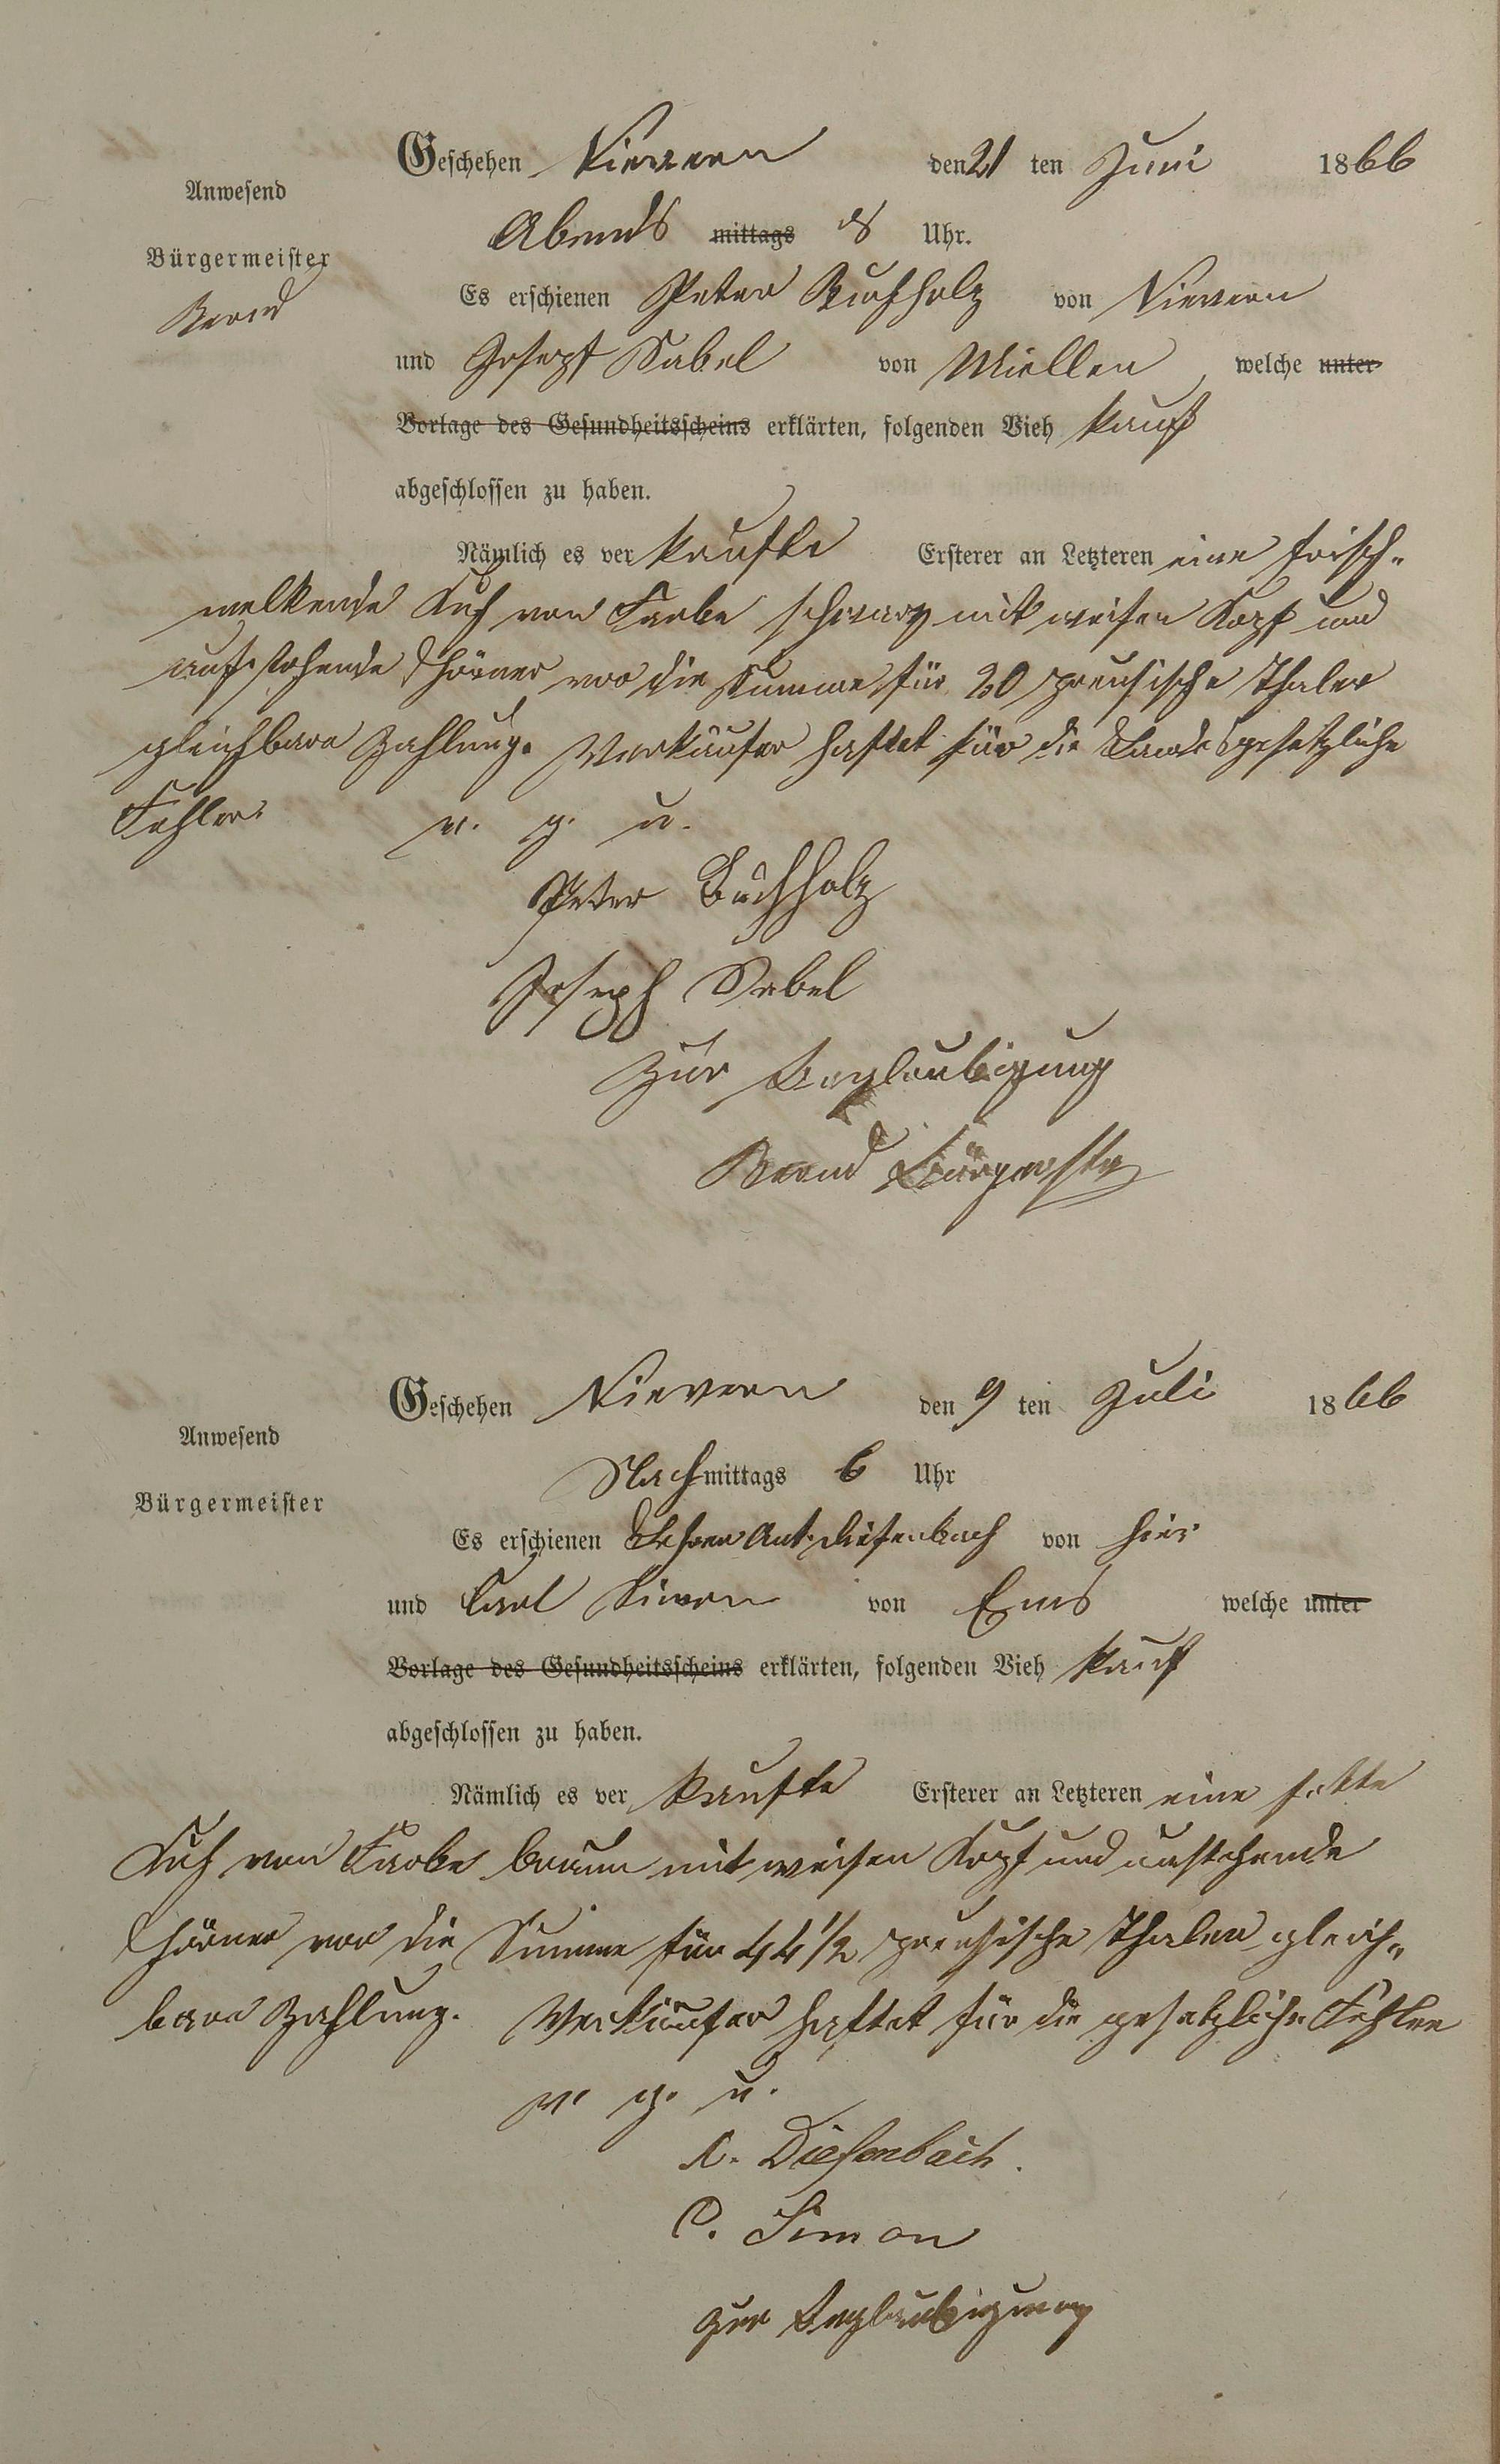 Geschehen Nievern den 21 ten Juni 1866
Anwesend
Abends mittags 8 Uhr.
Bürgermeister
Es erschienen Peter Buchholz von Nievern
und Joseph Sabel von Miellen, welche unter
Vorlage des Gesundheitsscheins erklärten, folgenden Vieh kauf
abgeschlossen zu haben.
Nämlich es ver kaufte Ersterer an Letzteren eine frisch-
melkende Kuh von Farbe schwarz mit weisen Kopf und
aufstehende Hörner vor die Summe für 20 preusische Thaler
gleichbare Zahlung. Verkäufer haftet für die Landesgesetzliche
Fehler.
v. g. u.
Peter Buchholz
Joseph Sabel
Zur Beglaubigung
Bürgermstr
Geschehen Nievern den 9 ten Juli 1866
Anwesend
Nachmittags 6 Uhr
Bürgermeister
Es erschienen Lehrer Ant. Diefenbach von hier
und Carl Simon von Ems welche unter
Vorlage des Gesundheitsscheins erklärten, folgenden Vieh kauf
abgeschlossen zu haben.
Nämlich es ver kaufte Ersterer an Letzteren eine fette
Kuh von Farbe braun mit weisen Kopf und
Hörner vor die Summe für 44 1/2 preusische Thaler gleich-
bare Zahlung. Verkäufer haftet für die gesetzliche Fehler
v. g. u.
A. Diefenbach.
C. Simon
Zur Beglaubigung